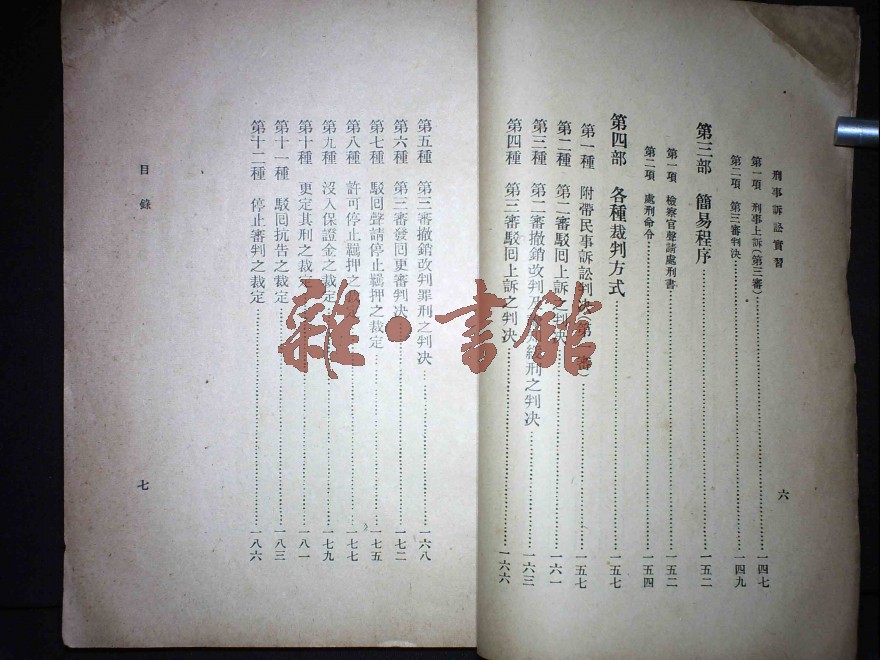 刑事訴訟實習
第一項 刑事上訴(第三審)……一四七
第二項 第三審判決……一四九
第三部 簡易程序……一五二
第一項 檢察官聲請處刑書……一五二
第二項 處刑命令……一五四
第四部 各種裁判方式……一五七
第一種 附帶民事訴訟判決(第審)……一五七
第二種 第二審駁回上訴之判決……一六一
第三種 第二審撤銷改判緩刑之判決……一六三
第四種 第三審駁回上訴之判決……一六六
六
第五種 第三審撤銷改判罪刑之判決……一六八
第六種 第三審發回更審判決……一七二
第七種 駁回聲請停止羈押之裁定……一七五
第八種 許可停止羈押之裁定……一七七
第九種 沒入保證金之裁定……一七九
第十種 更定其刑之裁定……一八一
第十一種 駁回抗告之裁定……一八三
第十二種 停止審判之裁定……一八六
目錄
七
雜·書館